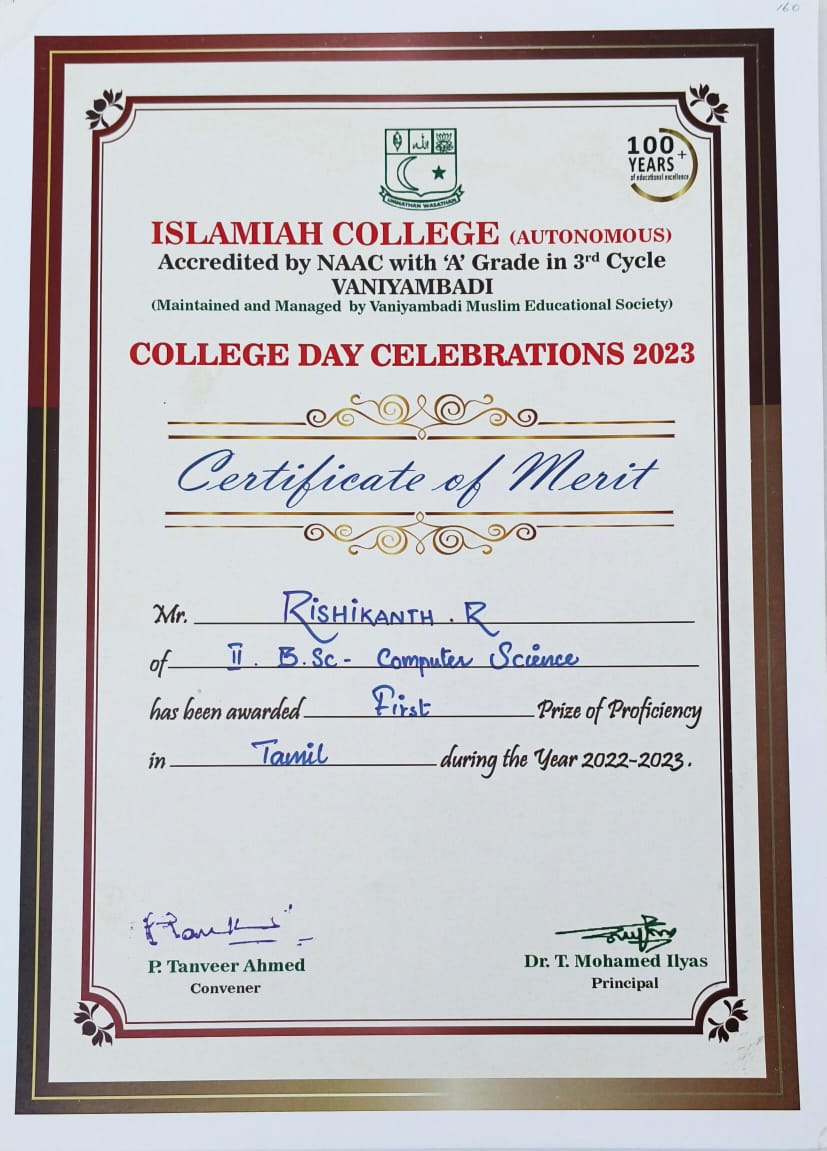 160
الله
UMMATHAN WASATHAN
100+
YEARS
of educational excellence
ISLAMIAH COLLEGE (AUTONOMOUS)
Accredited by NAAC with ‘A’ Grade in 3rd Cycle
VANIYAMBADI
(Maintained and Managed by Vaniyambadi Muslim Educational Society)
COLLEGE DAY CELEBRATIONS 2023
Certificate of Merit
Mr. RISHIKANTH . R
of II. B.Sc - Computer Science
has been awarded First Prize of Proficiency
in Tamil during the Year 2022-2023.
P. Tanveer Ahmed
Convener
Dr. T. Mohamed Ilyas
Principal